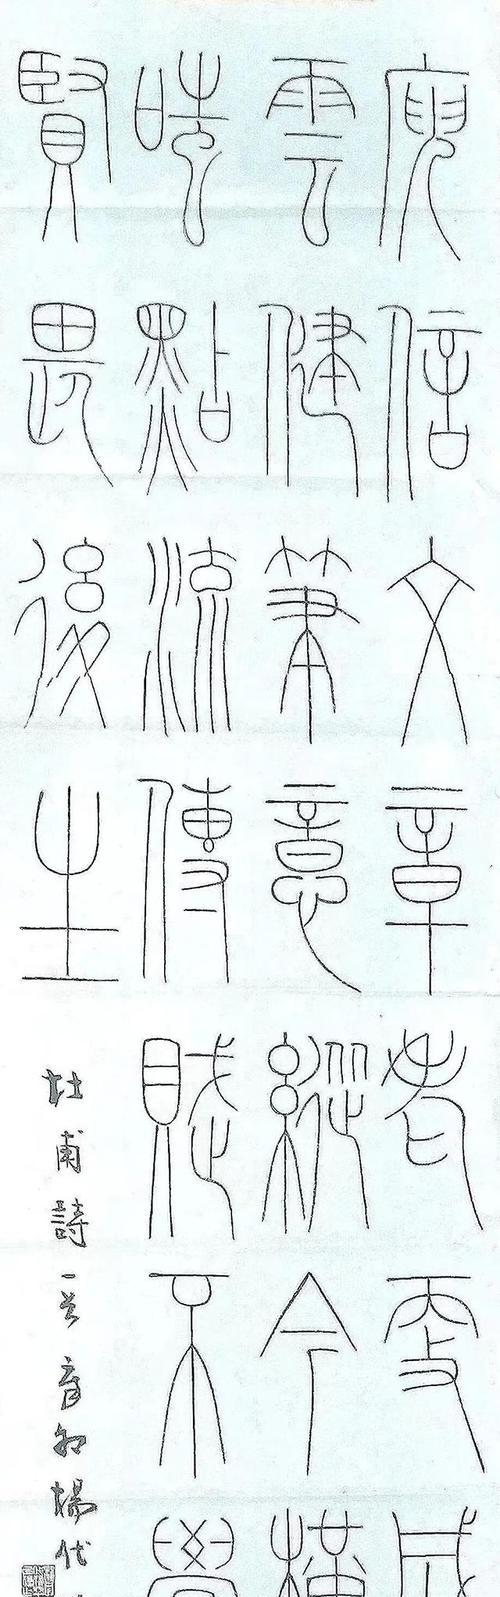 庾信文章老更成
雲健筆意縱今橫
嗤點流傳賦不覺
賢畏後生
杜甫詩一首辛卯楊代